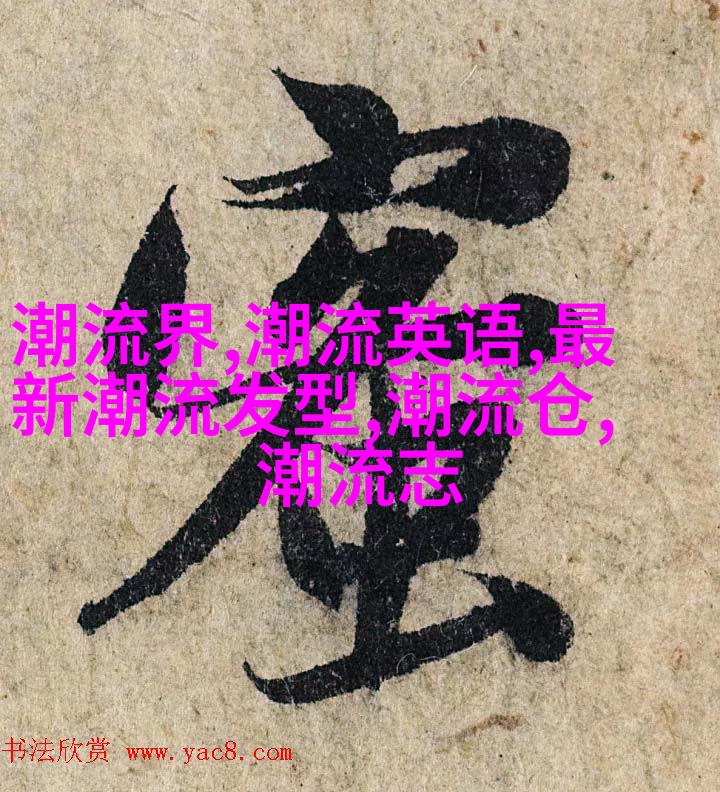 潮流界,潮流英语,最
新潮流发型,潮流仓,
潮流志
书法欣赏 www.yac8.com